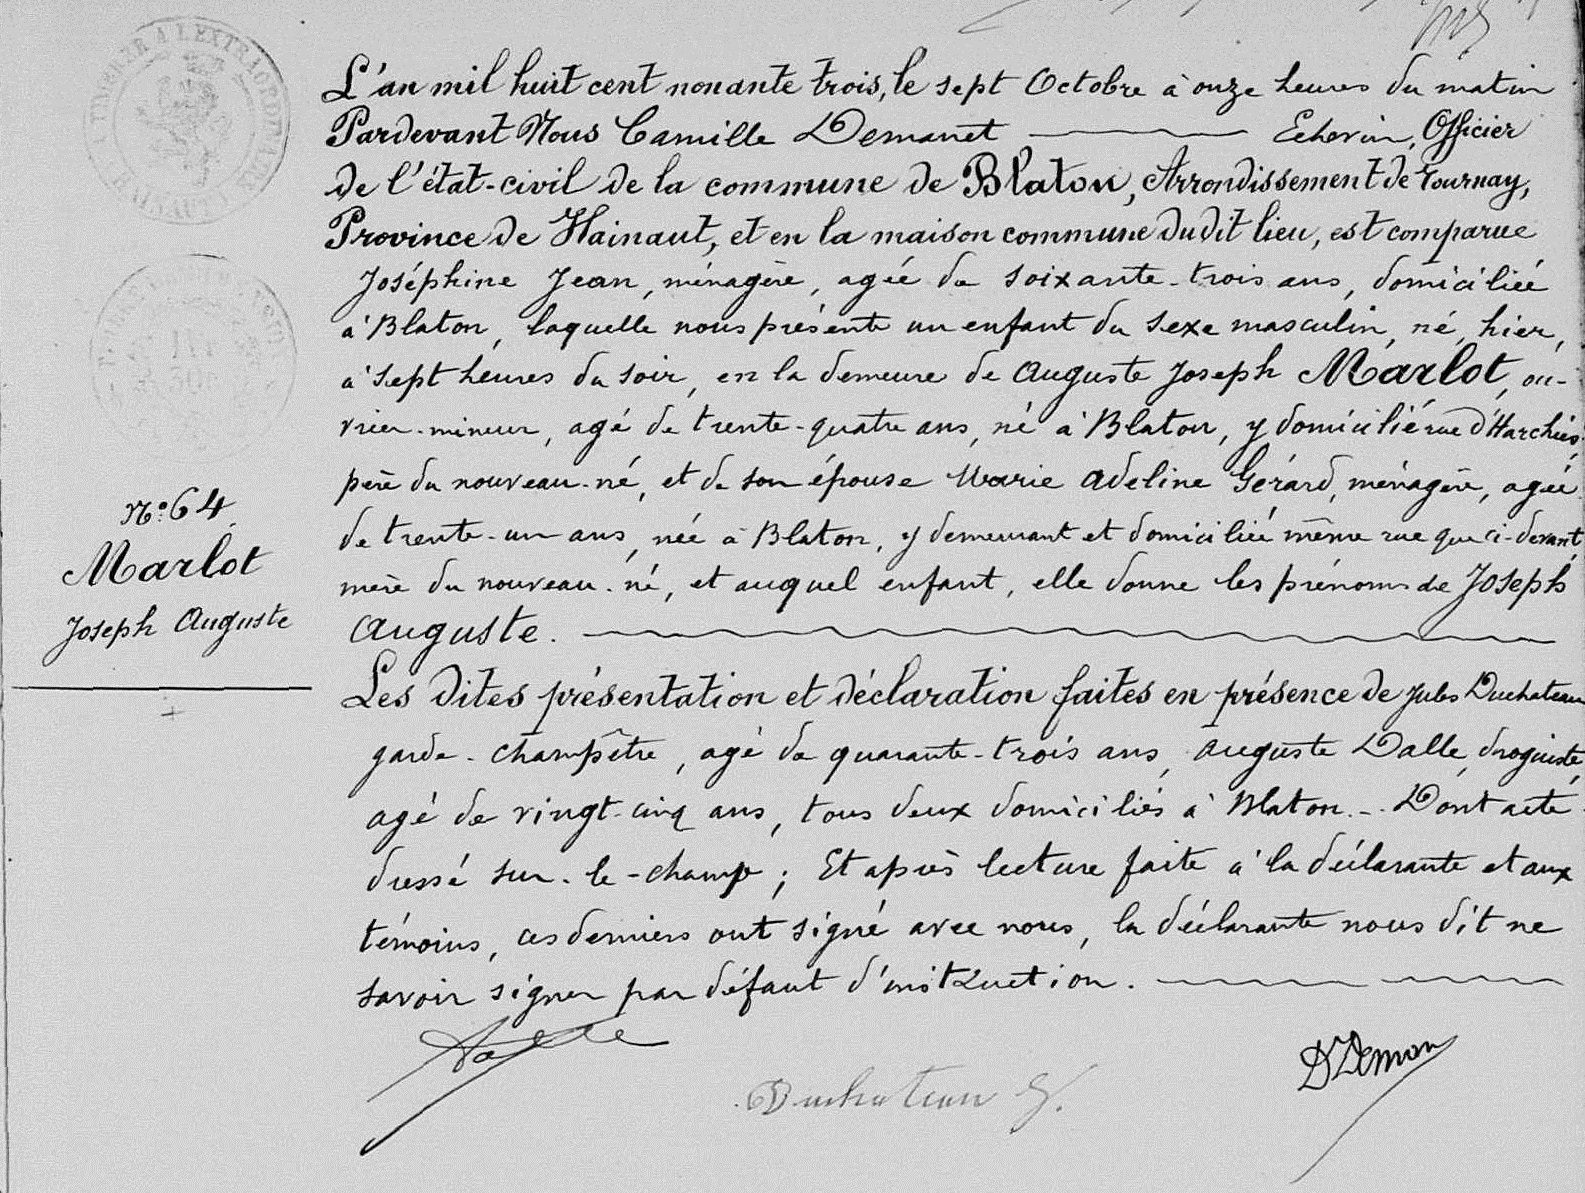 L'an mil huit cent nonante trois, le sept Octobre à onze heures du matin
Pardevant Nous Camille Demanet Echevin, Officier
de l'état-civil de la commune de Blaton, Arrondissement de Tournay,
Province de Hainaut, et en la maison commune dudit lieu, est comparue
Joséphine Jean, ménagère, agée de soixante-trois ans, domiciliée
à Blaton, laquelle nous présente un enfant du sexe masculin, né, hier,
à sept heures du soir, en la demeure de Auguste Joseph Marlot, ou-
vrier-mineur, agé de trente-quatre ans, né à Blaton, y domicilié rue d'Harchies,
père du nouveau-né, et de son épouse Marie Adeline Gérard, ménagère, agée
de trente-un ans, née à Blaton, y demeurant et domiciliée même rue que ci-devant,
mère du nouveau-né, et auquel enfant, elle donne les prénoms de Joseph
Auguste.
N° 64
Marlot
Joseph Auguste
Les dites présentation et déclaration faites en présence de Jules Duchateau
garde-champêtre, agé de quarante-trois ans, Auguste Dalle, droguiste,
agé de vingt-cinq ans, tous deux domiciliés à Blaton.- Dont acte
dressé sur-le-champ; Et après lecture faite à la déclarante et aux
témoins, ces derniers ont signé avec nous, la déclarante nous dit ne
savoir signer par défaut d'instruction.
Duchateau J.